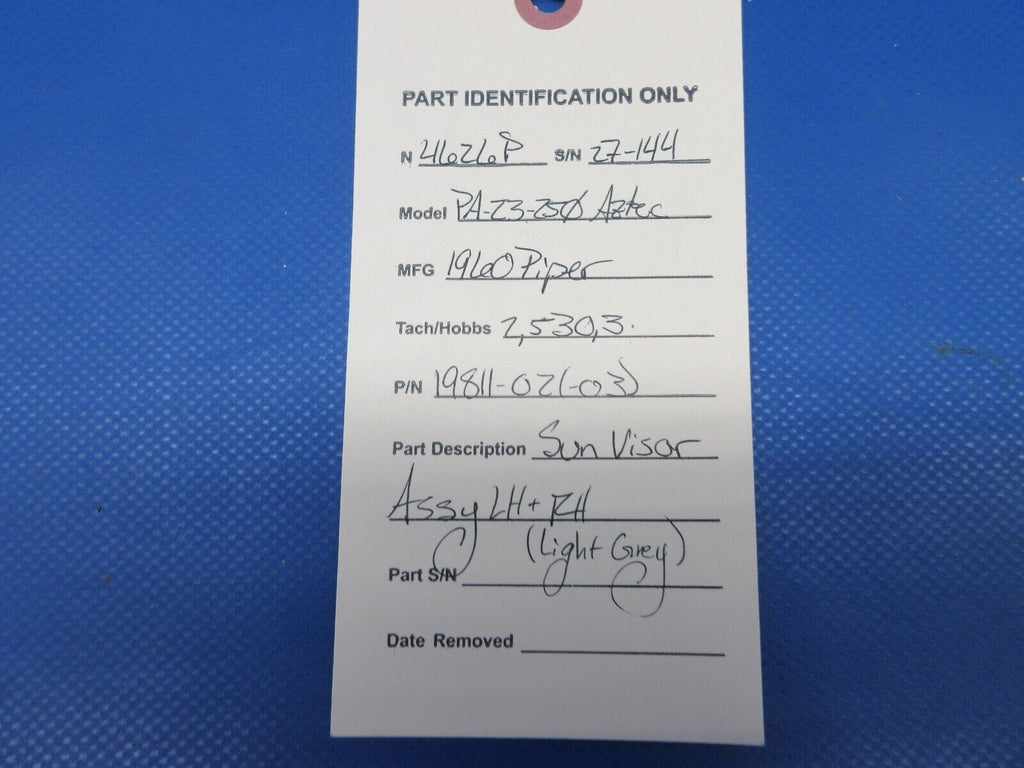 PART IDENTIFICATION ONLY
N 4626P S/N 27-144
Model PA-23-250 Aztec
MFG 1960 Piper
Tach/Hobbs 2,530,3.
P/N 19811-02(-03)
Part Description Sun Visor
Assy LH + RH
(Light Grey)
Part S/N
Date Removed